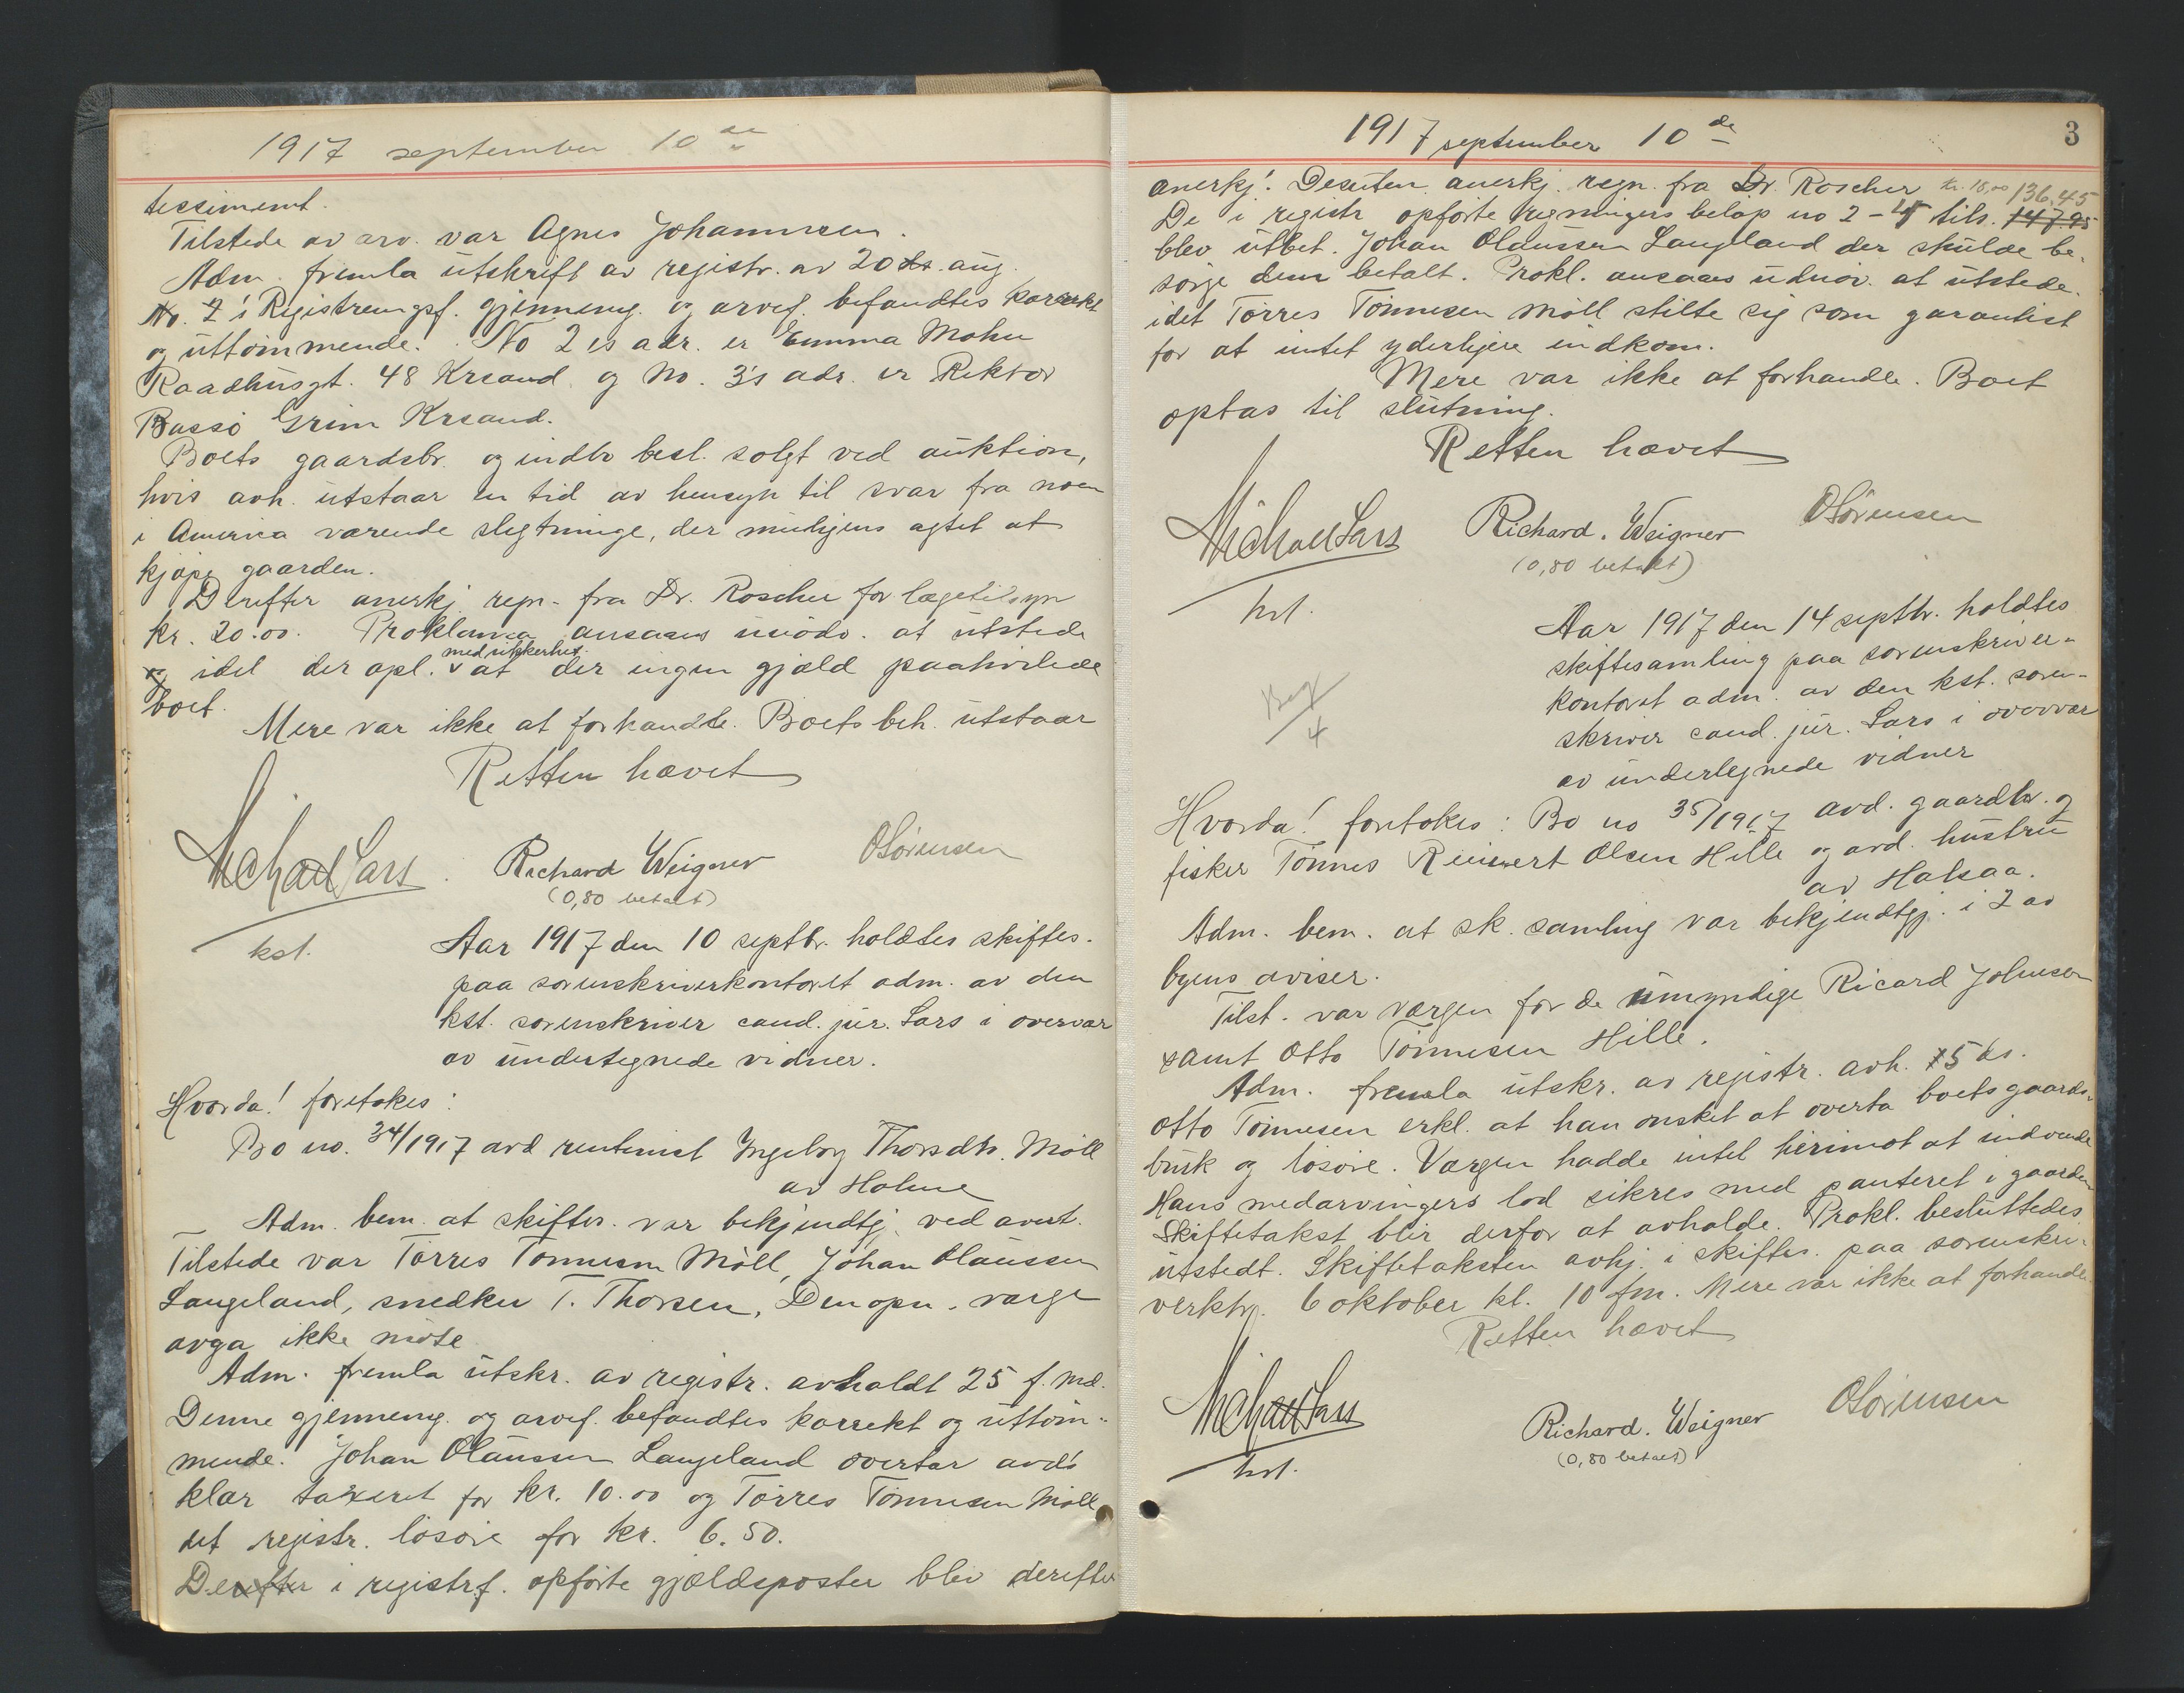 1917 september 10de
tessimemt.
Tilstede av arv. var Agnes Johannesen.
Adm. fremla utskrift av registr. av 20 ds. aug.
No. 2 i Registreringsf. gjenneng. og arvef. befandtes korrekt
og uttømmende. No 2 es adr. er Emma Mohn
Raadhusgt. 48 Krsand og No. 3's adr. er Rektor
Bussö Grim Krsand.
Boets gaardsbr. og indbo besl. solgt ved auktion,
hvis avh. utstaar en tid av hensyn til svar fra noen
i America værende slegtninge, der muligens agtet at
kjøpe gaarden.
Derefter anerkj. regn. fra Dr. Roscher for lægetilsyn
kr. 20.00. Proklama ansaaes unödv. at utstede
og idet der opl. med sikkerhet at der ingen gjæld paahvilede
boet.
Mere var ikke at forhandle. Boets beh. utstaar
Retten hævet
Michael Sars Richard Weigner OSörensen
(0,80 betalt)
kst.
Aar 1917 den 10 septbr. holdtes skiftes.
paa sorenskriverkontoret adm. av den
kst. sorenskriver cand. jur. Sars i overvær
av undertegnede vidner.
Hvorda! foretokes:
Bo no. 34/1917 avd rentenist Ingeborg Thorsdtr. Möll
av Holme
Adm. bem. at skiftes. var bekjendtgj. ved avert.
Tilstede var Törres Tönnesen Möll, Johan Olaussen
Langeland, snedker T. Thorsen, Den opn. værge
avga ikke möte
Adm. fremla utskr. av registr. avholdt 25 f. md.
Denne gjenneng. og arvef. befandtes korrekt og uttöm-
mende. Johan Olaussen Langeland overtar avd's
klær taxeret for kr. 10.00 og Törres Tönnesen Möll
det registr. lösöre for kr. 6.50.
Derefter i registrf. opförte gjældsposter blev derefter
1917 september 10de
3
anerkj! Desuten anerkj. regn. fra Dr. Roscher kr. 18,00 136,45
De i registr opförte regningers belöp no 2-4 tils. 147.95
blev utbet. Johan Olaussen Langeland der skulde be-
sörge dem betalt. Prokl. ansaaes udnöv. at utstede.
idet Törres Tönnesen Möll stilte sig som garantist
for at intet yderligere indkom.
Mere var ikke at forhandle. Boet
optas til slutning.
Retten hævet
Michael Sars Richard. Weigner OSörensen
(0,80 betalt)
kst.
Aar 1917 den 14 septbr. holdtes
skiftesamling paa sorenskriver-
kontoret adm. av den kst. soren-
skriver cand. jur. Sars i overvær
av undertegnede vidner
4
Hvorda! foretokes: Bo no 35/1917 avd. gaardbr. og
fisker Tönnes Reinert Olsen Hille og avd. hustru
av Halsaa.
Adm. bem. at sk. samling var bekjendtgj. i 2 av
byens aviser.
Tilst. var værgen for de umyndige Ricard Johnsen
samt Otto Tönnesen Hille.
Adm. fremla utskr. av registr. avh. 5 ds.
Otto Tönnesen erkl. at han önsket at overta boets gaards-
bruk og lösöre. Værgen hadde intet herimot at indvende
Hans medarvingers lod sikres med panteret i gaarden
Skiftetakst blir derfor at avholde. Prokl. besluttedes
utstedt. Skiftetaksten avhj. i skiftes. paa sorenskri-
verktr. 6 oktober kl. 10 fm. Mere var ikke at forhandle
Retten hævet
Michael Sars Richard. Weigner OSörensen
(0,80 betalt)
kst.